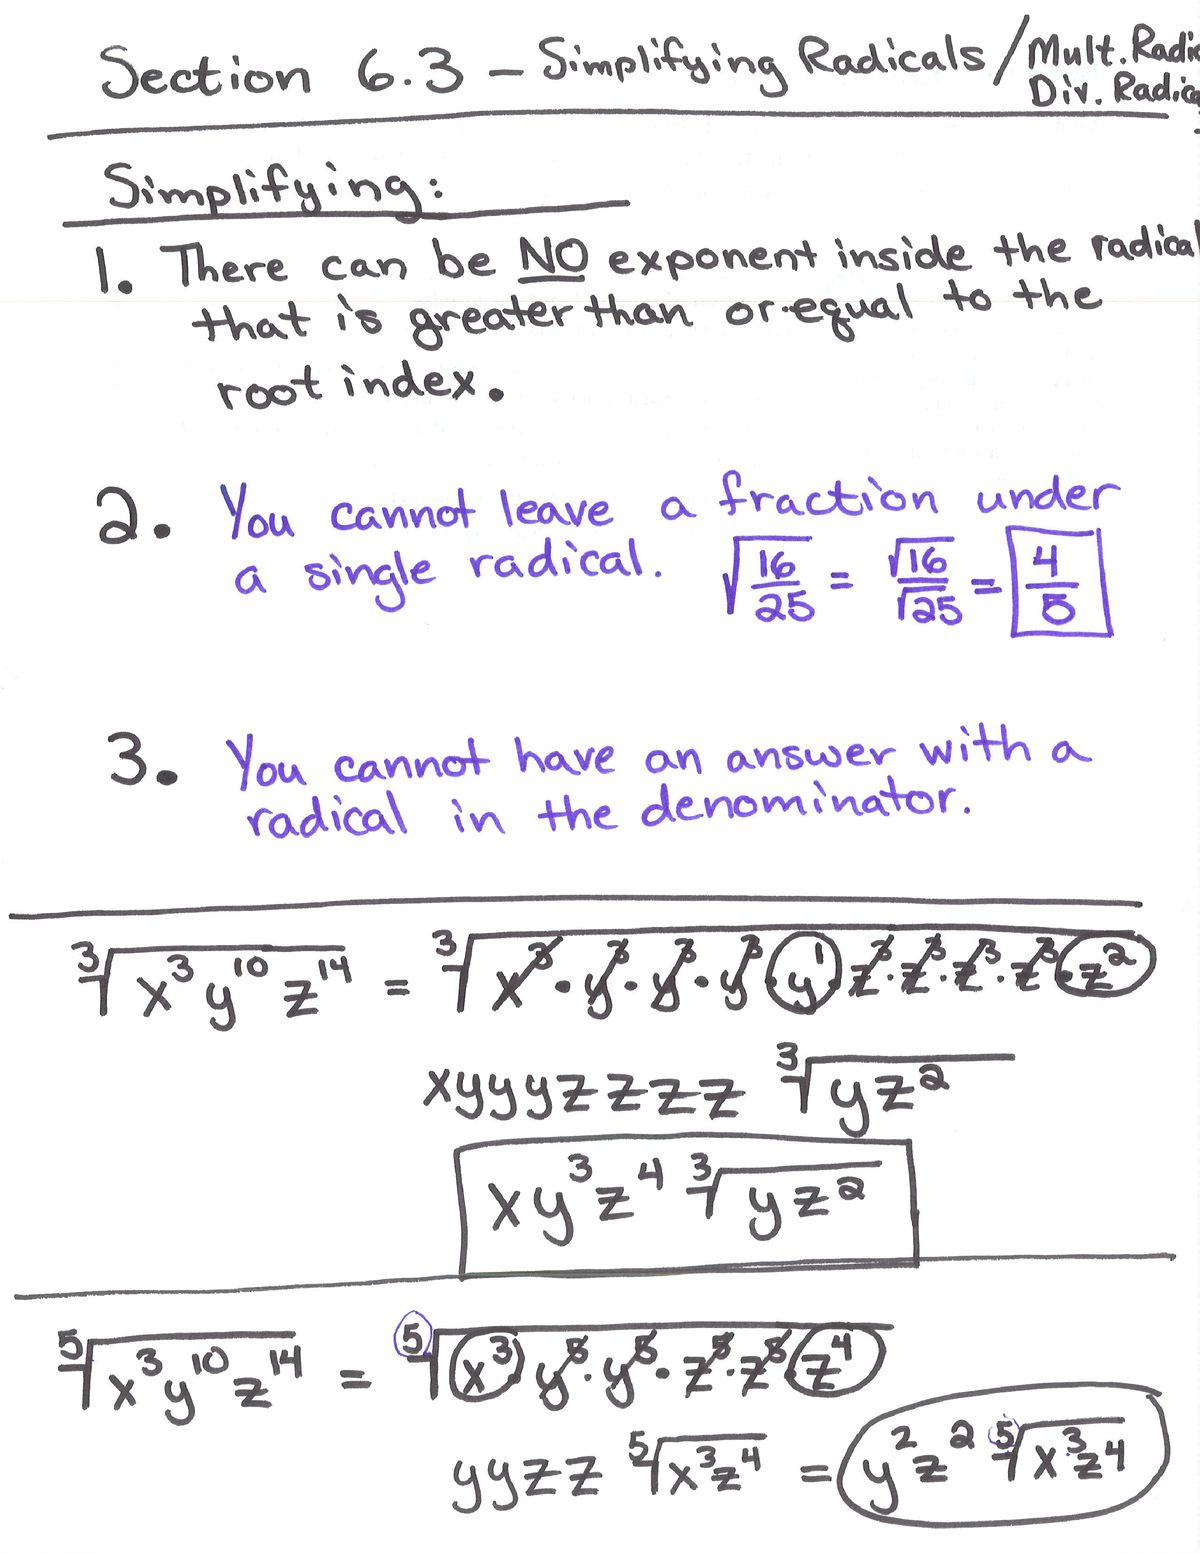 Section 6.3 – Simplifying Radicals / Mult. Radic
Div. Radica
Simplifying:
1. There can be NO exponent inside the radical
that is greater than or equal to the
root index.
2. You cannot leave a fraction under
a single radical. √(16/25) = √16/√25 = 4/5
3. You cannot have an answer with a
radical in the denominator.
∛(x³y¹⁰z¹⁴) = ∛(x³·y³·y³·y³ y¹ z³·z³·z³·z³·z²)
xyyyzzzz ∛(yz²)
xy³z⁴ ∛(yz²)
⁵√(x³y¹⁰z¹⁴) = ⁵√(x³ y⁵·y⁵·z⁵·z⁵ z⁴)
yyzz ⁵√(x³z⁴) = y²z² ⁵√(x³z⁴)